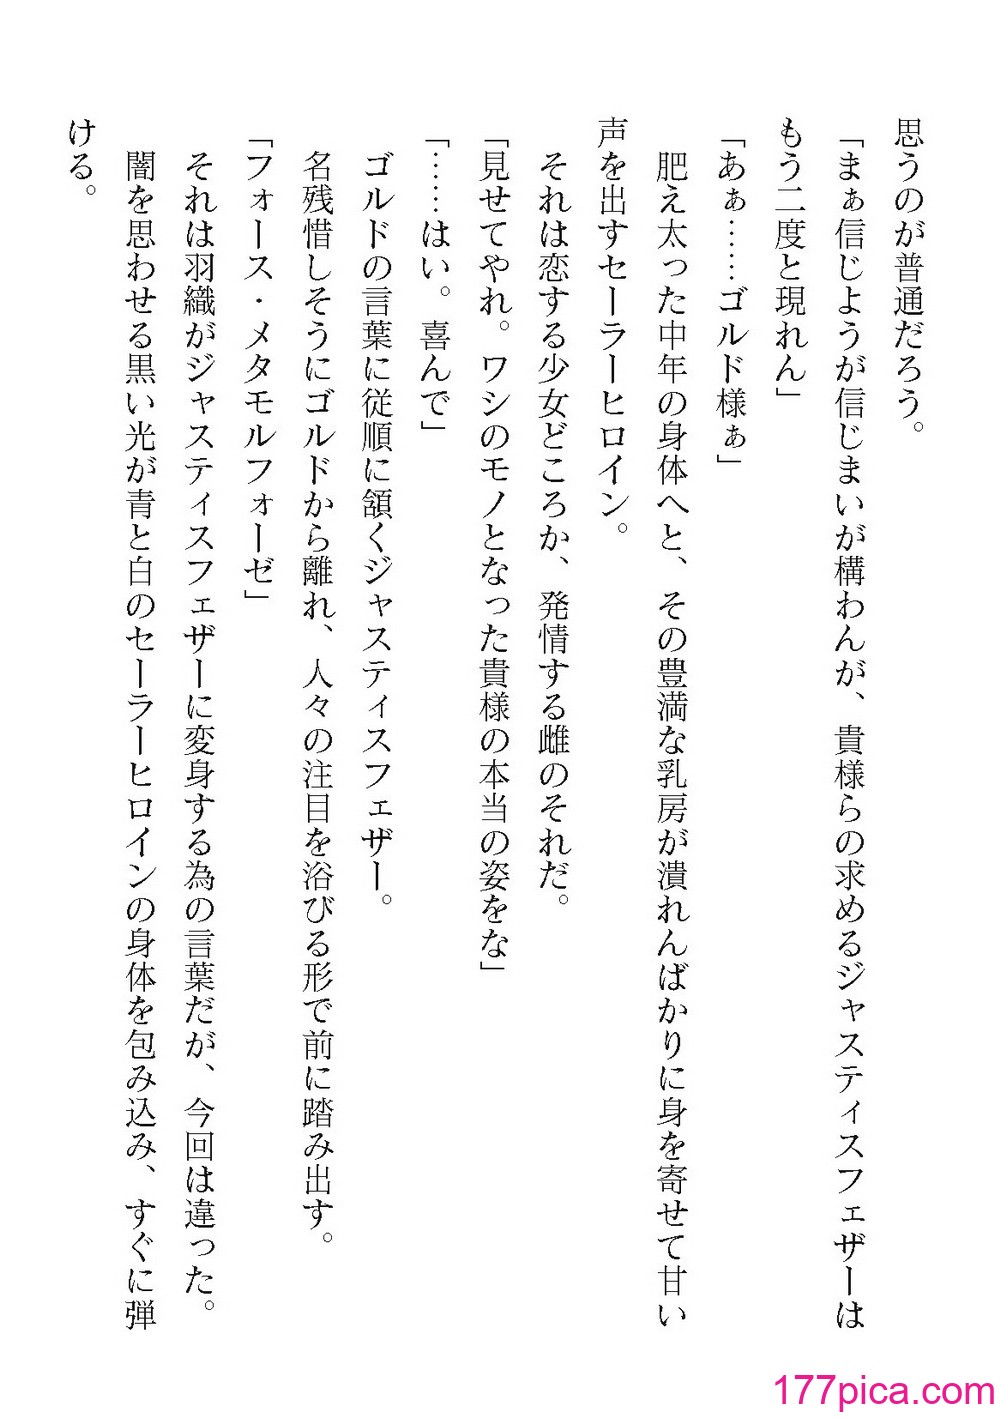 思うのが普通だろう。
「まぁ信じようが信じまいが構わんが、貴様らの求めるジャスティスフェザーは
もう二度と現れん」
「あぁ……ゴルド様ぁ」
肥え太った中年の身体へと、その豊満な乳房が潰れんばかりに身を寄せて甘い
声を出すセーラーヒロイン。
それは恋する少女どころか、発情する雌のそれだ。
「見せてやれ。ワシのモノとなった貴様の本当の姿をな」
「……はい。喜んで」
ゴルドの言葉に従順に頷くジャスティスフェザー。
名残惜しそうにゴルドから離れ、人々の注目を浴びる形で前に踏み出す。
「フォース・メタモルフォーゼ」
それは羽織がジャスティスフェザーに変身する為の言葉だが、今回は違った。
闇を思わせる黒い光が青と白のセーラーヒロインの身体を包み込み、すぐに弾
ける。
177pica.com